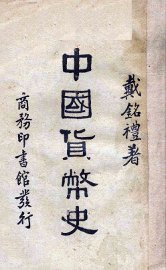 戴銘禮著
中國貨幣史
商務印書館發行